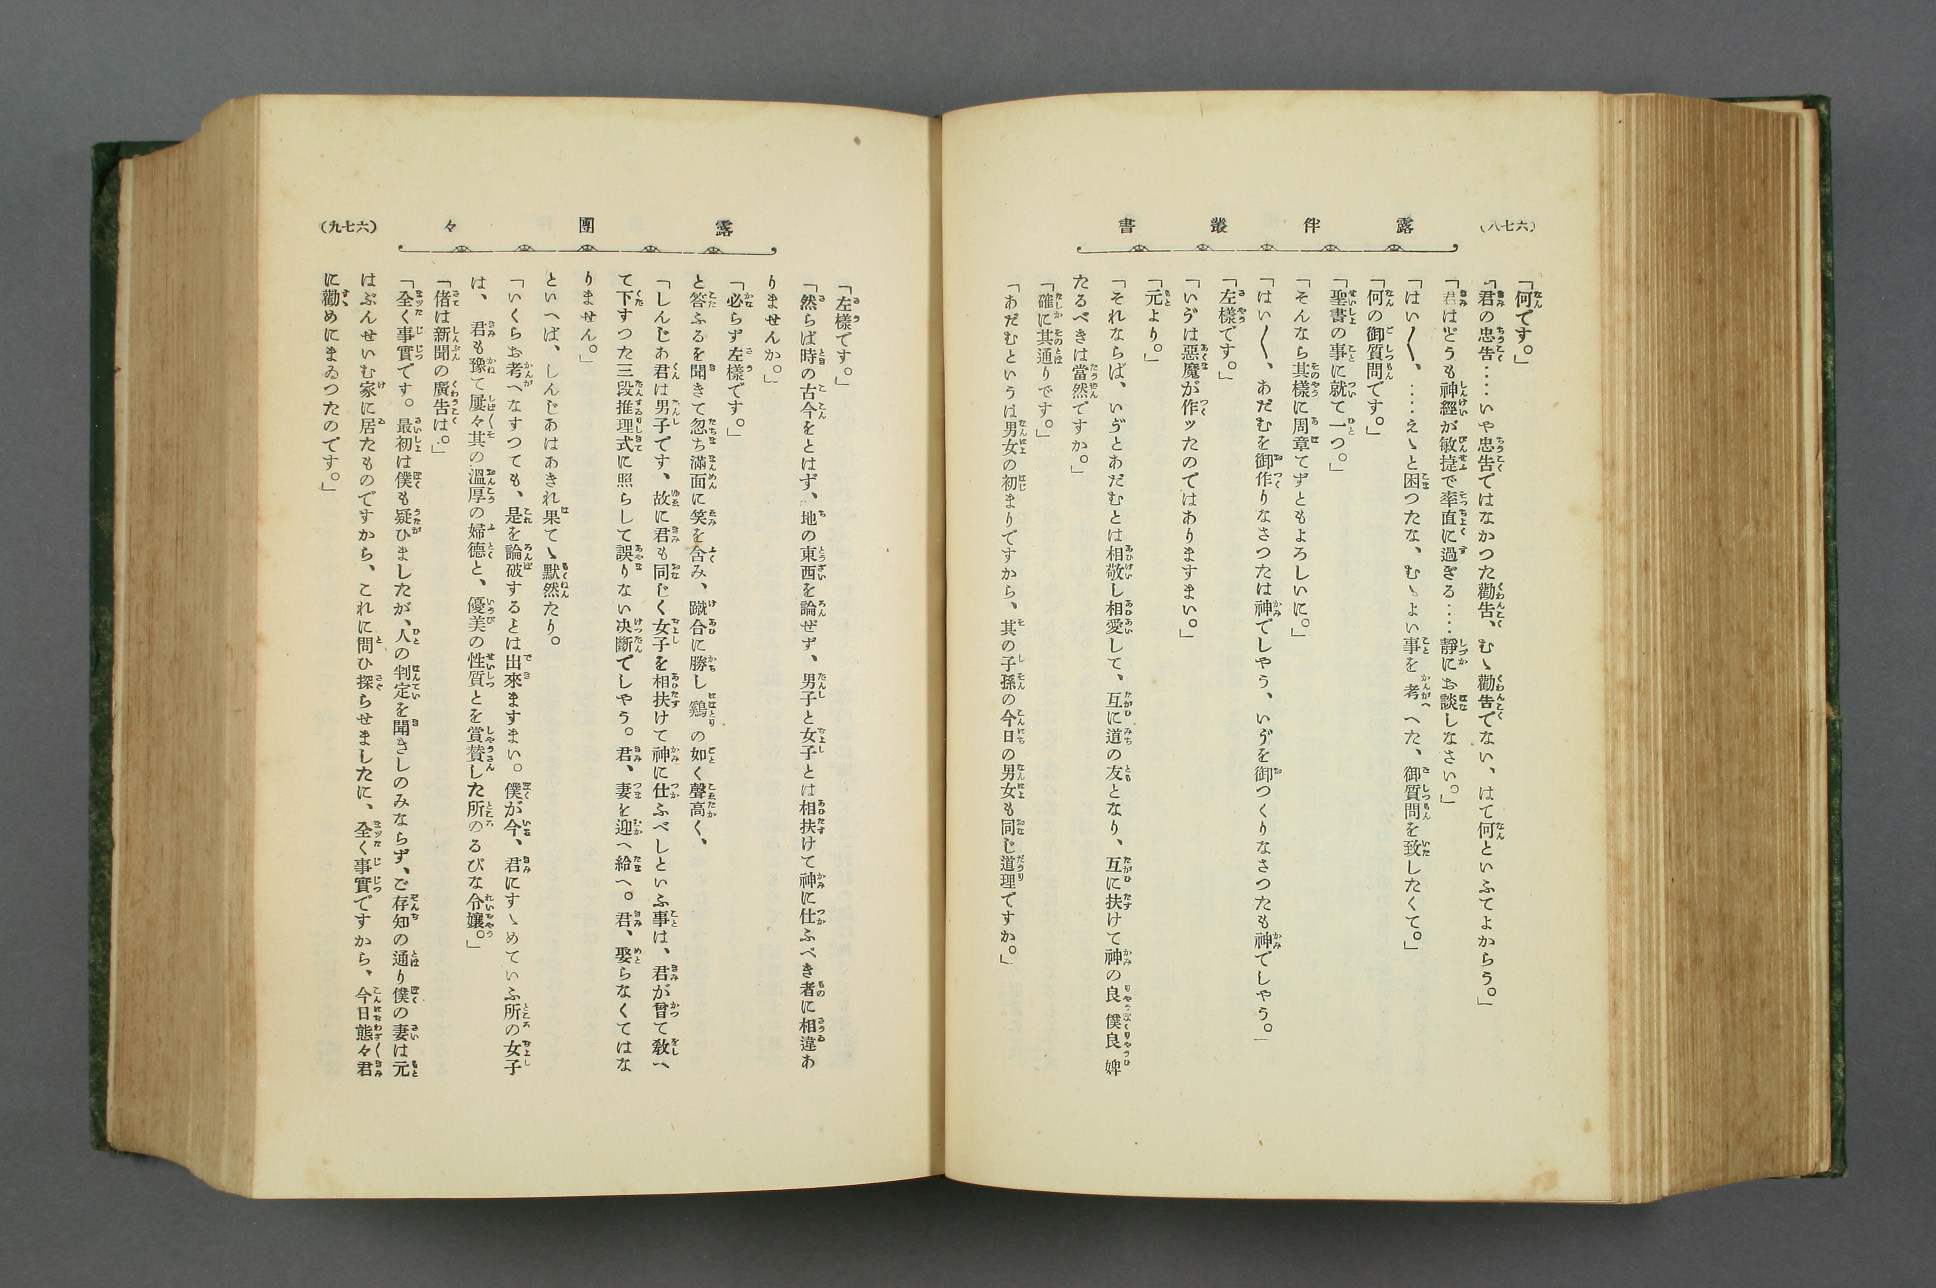 (六七八)
露伴叢書
「何です。」
「君の忠告‥‥いや忠告ではなかつた勸告、む丶勸告でない、はて何といふてよからう。」
「君はどうも神經が敏捷で率直に過ぎる‥‥靜にお談しなさい。」
「はい〱、‥‥え丶と困つたな、む丶よい事を考へた、御質問を致したくて。」
「何の御質問です。」
「聖書の事に就て一つ。」
「そんなら其樣に周章てずともよろしいに。」
「はい〱、あだむを御作りなさつたは神でしやう、いゔを御つくりなさつたも神でしやう。」
「左樣です。」
「いゔは惡魔が作ッたのではありますまい。」
「元より。」
「それならば、いゔとあだむとは相敬し相愛して、互に道の友となり、互に扶けて神の良僕良婢
たるべきは當然ですか。」
「確に其通りです。」
「あだむというは男女の初まりですから、其の子孫の今日の男女も同じ道理ですか。」
露團々
(六七九)
「左樣です。」
「然らば時の古今をとはず、地の東西を論ぜず、男子と女子とは相扶けて神に仕ふべき者に相違あ
りませんか。」
「必らず左樣です。」
と答ふるを聞きて忽ち滿面に笑を含み、蹴合に勝し鷄の如く聲高く、
「しんじあ君は男子です、故に君も同じく女子を相扶けて神に仕ふべしといふ事は、君が曾て敎へ
て下すつた三段推理式に照らして誤りない決斷でしやう。君、妻を迎へ給へ。君、娶らなくてはな
りません。」
といへば、しんじあはあきれ果て丶默然たり。
「いくらお考へなすつても、是を論破するとは出來ますまい。僕が今、君にす丶めていふ所の女子
は、君も豫て屢々其の溫厚の婦德と、優美の性質とを賞賛した所のるびな令孃。」
「偖は新聞の廣告は。」
「全く事實です。最初は僕も疑ひましたが、人の判定を聞きしのみならず、ご存知の通り僕の妻は元
はぶんせいむ家に居たものですから、これに問ひ探らせましたに、全く事實ですから、今日態々君
に勸めにまゐつたのです。」